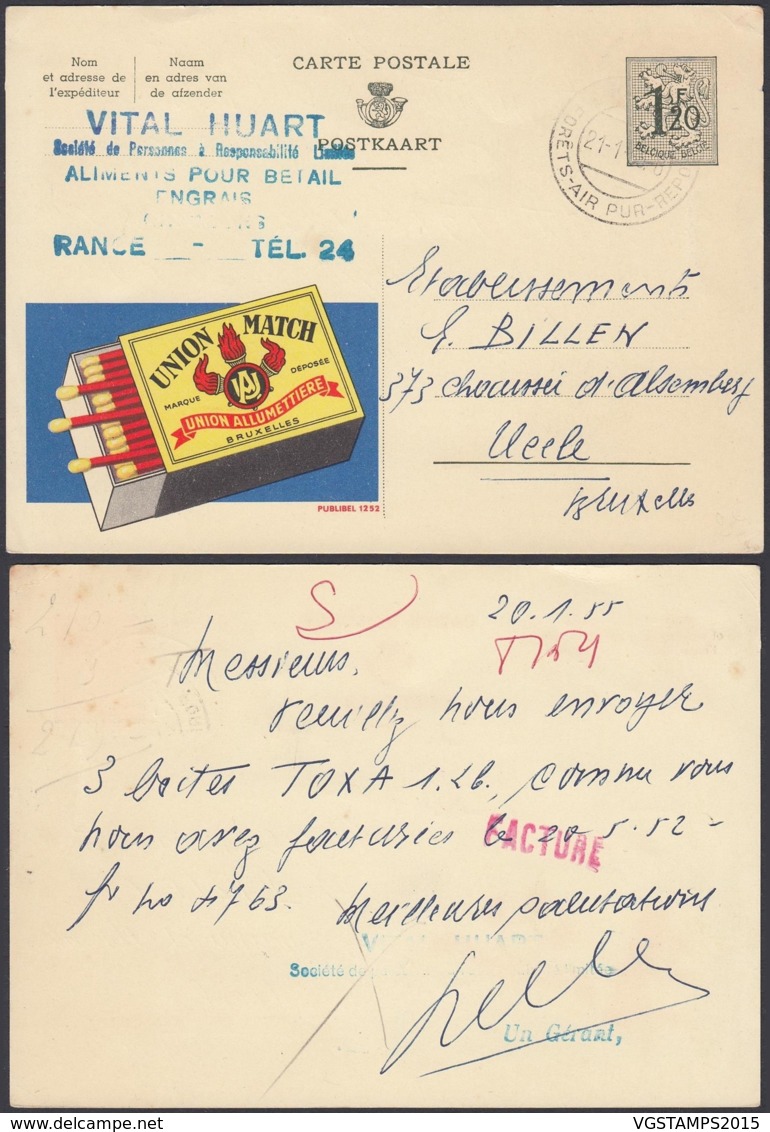 Nom
et adresse de
l'expéditeur
Naam
en adres van
de afzender
CARTE POSTALE
POSTKAART
1F20
BELGIQUE-BELGIE
FORÊTS-AIR PUR-REPO
21-1
VITAL HUART
Société de Personnes à Responsabilité Limitée
ALIMENTS POUR BETAIL
ENGRAIS
RANCE - TÉL. 24
UNION MATCH
MARQUE DÉPOSÉE
UNION ALLUMETTIERE
BRUXELLES
PUBLIBEL 1252
Etablissements
BILLEN
373 chaussée d'Alsemberg
Uccle
Bruxelles
20.1.55
Messieurs,
Veuillez nous envoyer
3 boites TOXA 1.Lb., comme vous
nous avez facturies le 20-5-52-
FACTURE
Meilleures salutations
VITAL HUART
Société de
Un Gérant,
VGSTAMPS2015